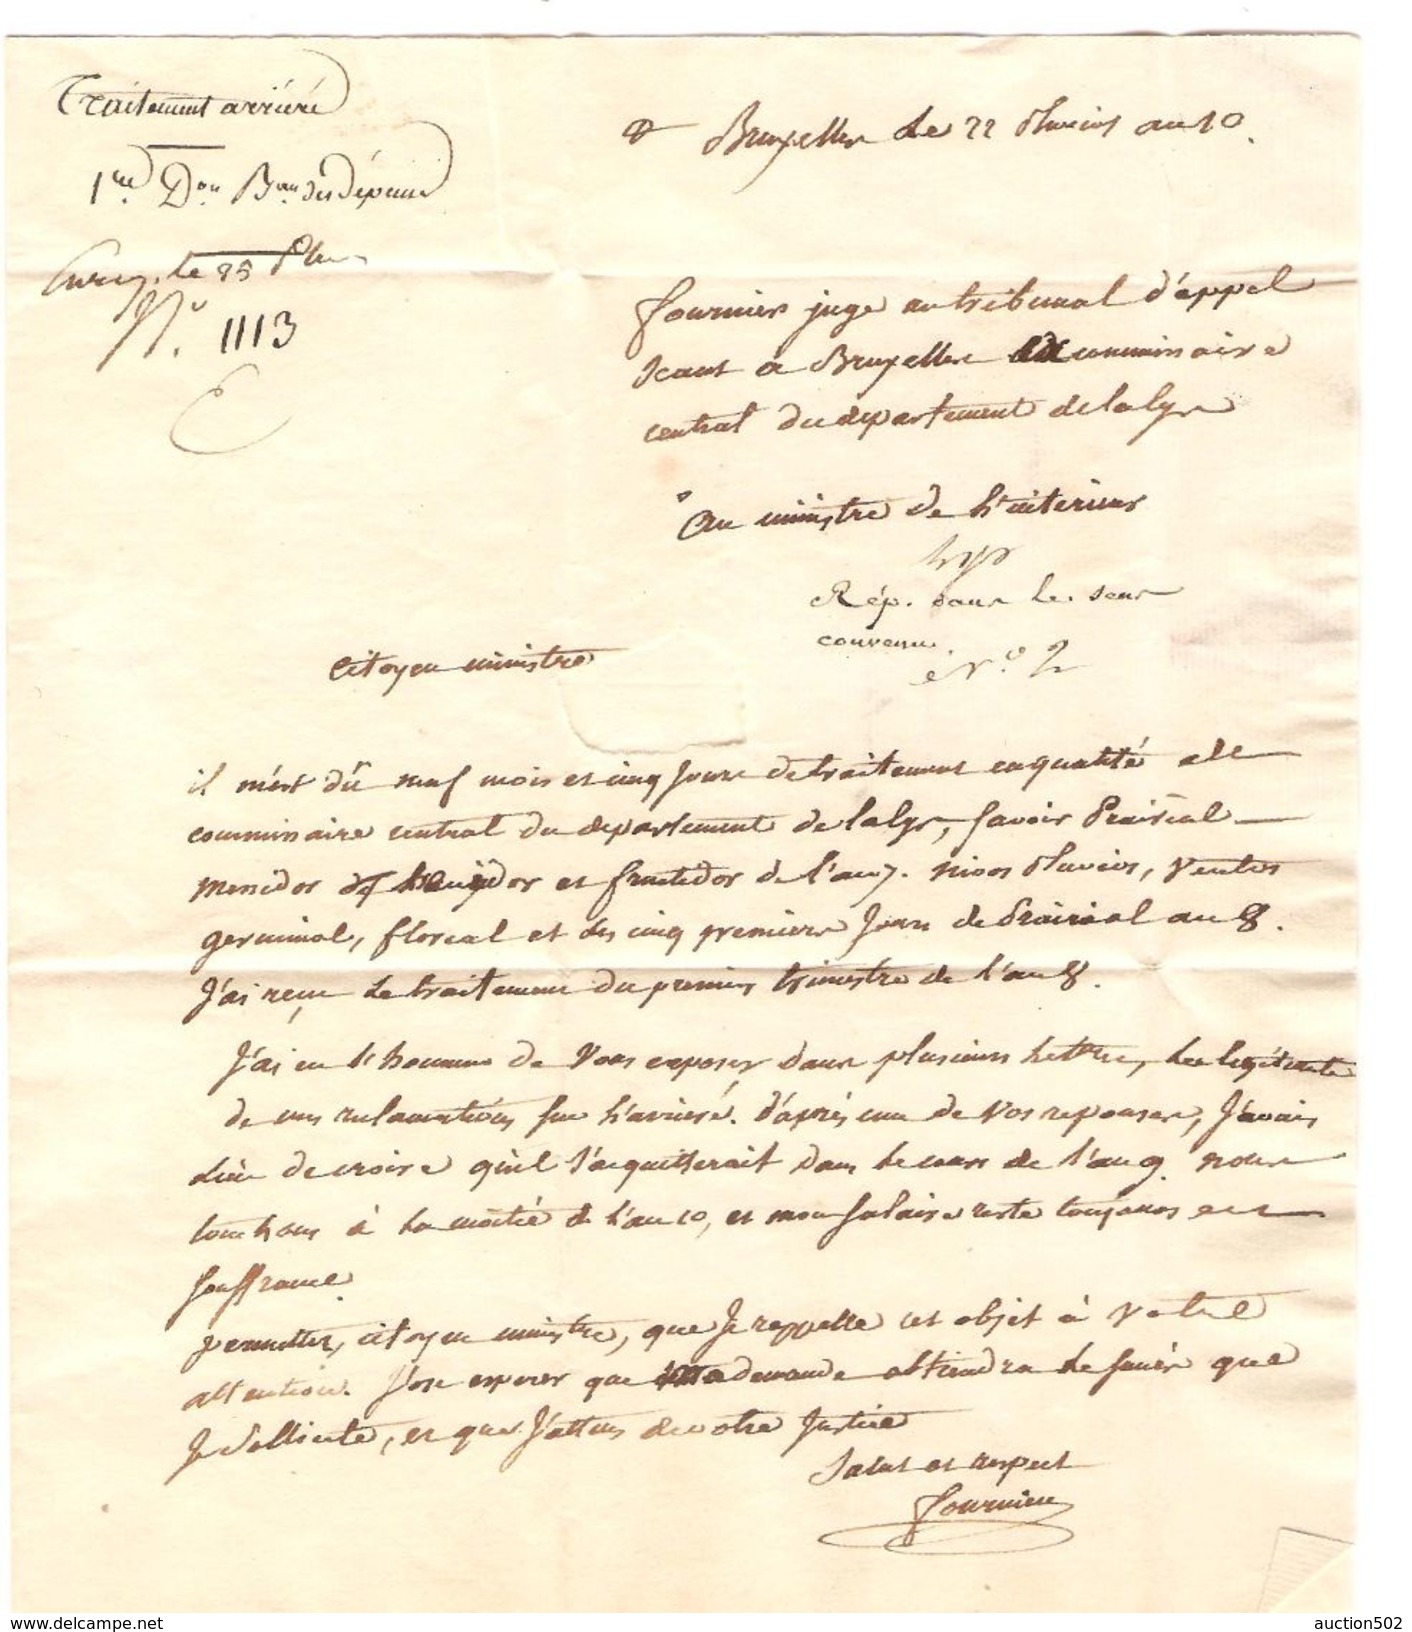 Traitement arriéré
1ere Don Bau des dépenses
Enreg. le 25 Pluv
N° 1113
a Bruxelles le 22 Pluvios an 10.
fournier juge au tribunal d'appel
Seant a Bruxelles commissaire
central du departement de la lys
au ministre de l'interieur
Rép. dans le sens
convenu.
N.° 2
Citoyen ministre
il m'est dû neuf mois et cinq jours de traitement en qualité de
commissaire central du departement de la lys, savoir Prairéal
Messidor thermidor et fructidor de l'an 7. nivos Pluvios, Ventos
germinal, floreal et les cinq premiers jours de Prairial an 8.
J'ai reçu le traitement du premier trimestre de l'an 8.
J'ai eu l'honneur de vous exposer dans plusieurs lettres, la legitimité
de mes reclamations sur l'arrieré. d'après une de vos reponses, J'avais
lieu de croire qu'il s'acquitterait dans le cours de l'an 9. nous
touchons à la moitié de l'an 10, et mon salaire reste toujours en
souffrance.
permettez, citoyen ministre, que Je rappelle cet objet à votre
attention. J'ose esperer que ma demande obtiendra le succès que
Je sollicite, et que J'attens de votre Justice
Salut et respect
fournier
www.delcampe.net
auction502